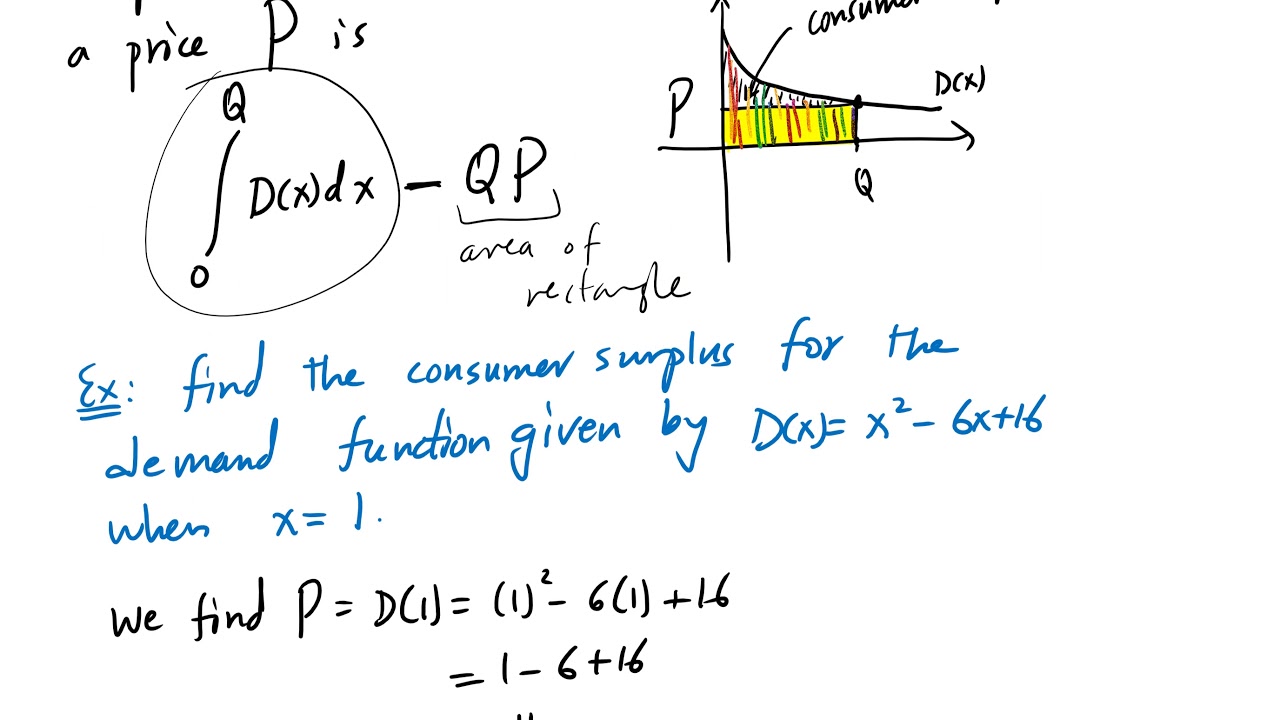 a price P is
Q
∫ D(x)dx - QP
0
area of
rectangle
consumer
P
D(x)
Q
Ex: find the consumer surplus for the
demand function given by D(x)= x² - 6x+16
when x= 1.
We find P = D(1) = (1)² - 6(1) +16
= 1 - 6 +16